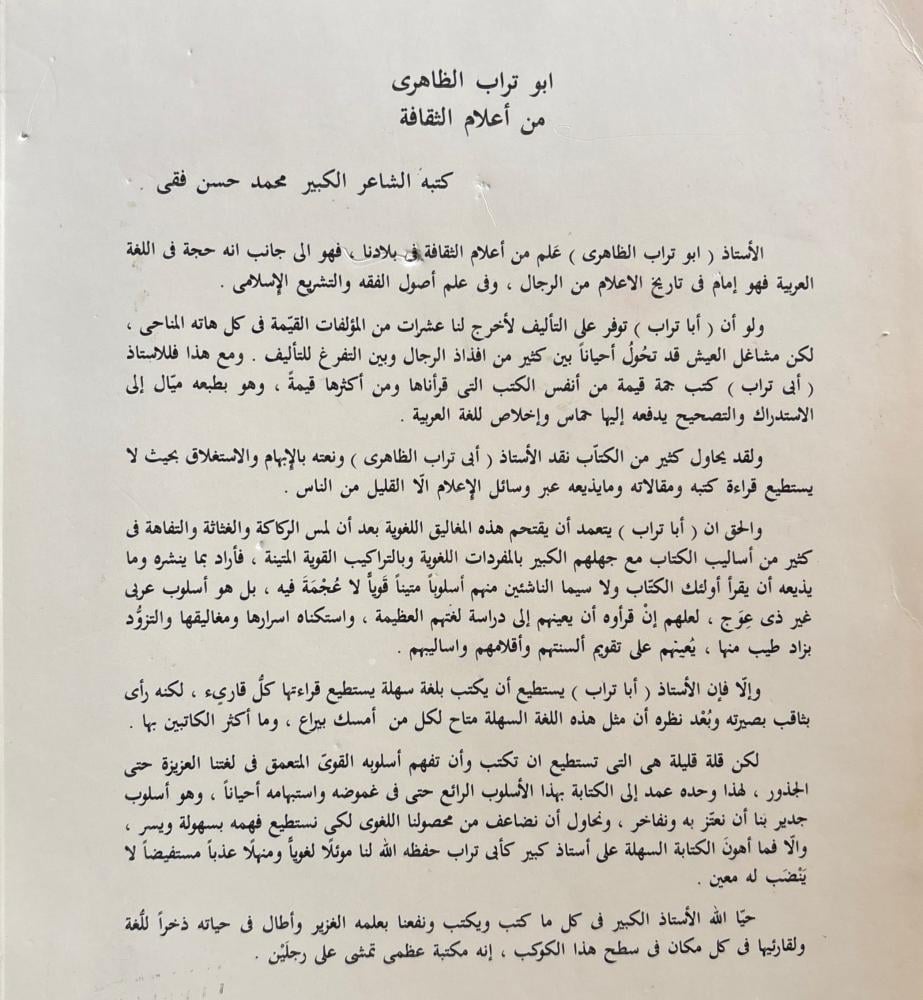 ابو تراب الظاهرى
من أعلام الثقافة
كتبه الشاعر الكبير محمد حسن فقى .
الأستاذ ( ابو تراب الظاهرى ) عَلم من أعلام الثقافة فى بلادنا ، فهو الى جانب انه حجة فى اللغة
العربية فهو إمام فى تاريخ الاعلام من الرجال ، وفى علم أصول الفقه والتشريع الإسلامى .
ولو أن ( أبا تراب ) توفر على التأليف لأخرج لنا عشرات من المؤلفات القيّمة فى كل هاته المناحى ،
لكن مشاغل العيش قد تحُولُ أحياناً بين كثير من افذاذ الرجال وبين التفرغ للتأليف . ومع هذا فللاستاذ
( أبى تراب ) كتب جمة قيمة من أنفس الكتب التى قرأناها ومن أكثرها قيمةً ، وهو بطبعه ميّال إلى
الاستدراك والتصحيح يدفعه إليها حماس وإخلاص للغة العربية .
ولقد يحاول كثير من الكتاّب نقد الأستاذ ( أبى تراب الظاهرى ) ونعته بالإبهام والاستغلاق بحيث لا
يستطيع قراءة كتبه ومقالاته ومايذيعه عبر وسائل الإعلام الّا القليل من الناس .
والحق ان ( أبا تراب ) يتعمد أن يقتحم هذه المغاليق اللغوية بعد أن لمس الركاكة والغثاثة والتفاهة فى
كثير من أساليب الكتاب مع جهلهم الكبير بالمفردات اللغوية وبالتراكيب القوية المتينة ، فأراد بما ينشره وما
يذيعه أن يقرأ أولئك الكتّاب ولا سيما الناشئين منهم أسلوباً متيناً قَوياًّ لا عُجْمَةَ فيه ، بل هو أسلوب عربى
غير ذى عِوَج ، لعلهم إنْ قرأوه أن يعينهم إلى دراسة لغتهم العظيمة ، واستكناه اسرارها ومغاليقها والتزوُّد
بزاد طيب منها ، يُعينهم على تقويم ألسنتهم وأقلامهم واساليبهم .
وإلّا فإن الأستاذ ( أبا تراب ) يستطيع أن يكتب بلغة سهلة يستطيع قراءتها كلُّ قارىء ، لكنه رأى
بثاقب بصيرته وبُعْد نظره أن مثل هذه اللغة السهلة متاح لكل من أمسك بيراع ، وما أكثر الكاتبين بها .
لكن قلة قليلة هى التى تستطيع ان تكتب وأن تفهم أسلوبه القوىّ المتعمق فى لغتنا العزيزة حتى
الجذور ، لهذا وحده عمد إلى الكتابة بهذا الأسلوب الرائع حتى فى غموضه واستبهامه أحياناً ، وهو أسلوب
جدير بنا أن نعتّز به ونفاخر ، ونحاول أن نضاعف من محصولنا اللغوى لكى نستطيع فهمه بسهولة ويسر ،
والّا فما أهونَ الكتابة السهلة على أستاذ كبير كأبى تراب حفظه الله لنا موئلًا لغوياًّ ومنهلًا عذباً مستفيضاً لا
يَنْضَب له معين .
حيّا الله الأستاذ الكبير فى كل ما كتب ويكتب ونفعنا بعلمه الغزير وأطال فى حياته ذخراً للُّغة
ولقارئيها فى كل مكان فى سطح هذا الكوكب ، إنه مكتبة عظمى تمشى على رجلَيْن .